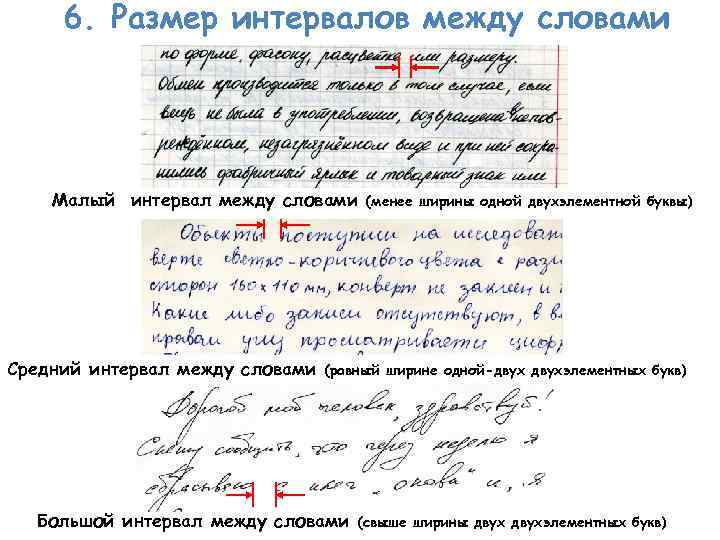 6. Размер интервалов между словами
по форме, фасону, расцветке или размеру.
Обмен производится только в том случае, если
вещь не была в употреблении, возвращена в непов-
реждённом, незагрязнённом виде и при ней сохра-
нились фабричный ярлык и товарный знак или
Малый интервал между словами (менее ширины одной двухэлементной буквы)
Объекты поступили на исследован
верте светло-коричневого цвета с разм
сторон 160 х 110 мм, конверт не заклеен и
Какие либо записи отсутствуют, в в
правом углу просматривается цифр
Средний интервал между словами (равный ширине одной-двух двухэлементных букв)
Дорогой мой человек, здравствуй!
Спешу сообщить, что через неделю я
с и, я
Большой интервал между словами (свыше ширины двух двухэлементных букв)